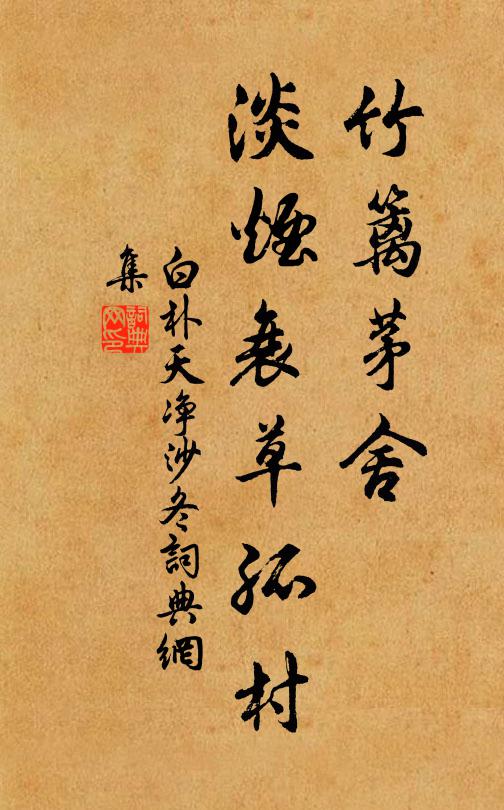 竹篱茅舍
淡煙衰草孤村
白朴天净沙冬詞典網
集
詞典
网印